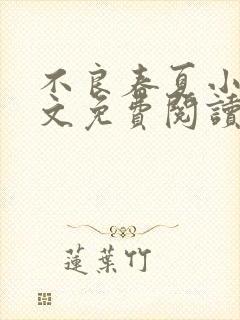 不良春夏小
文免費閱讀
蓮葉竹